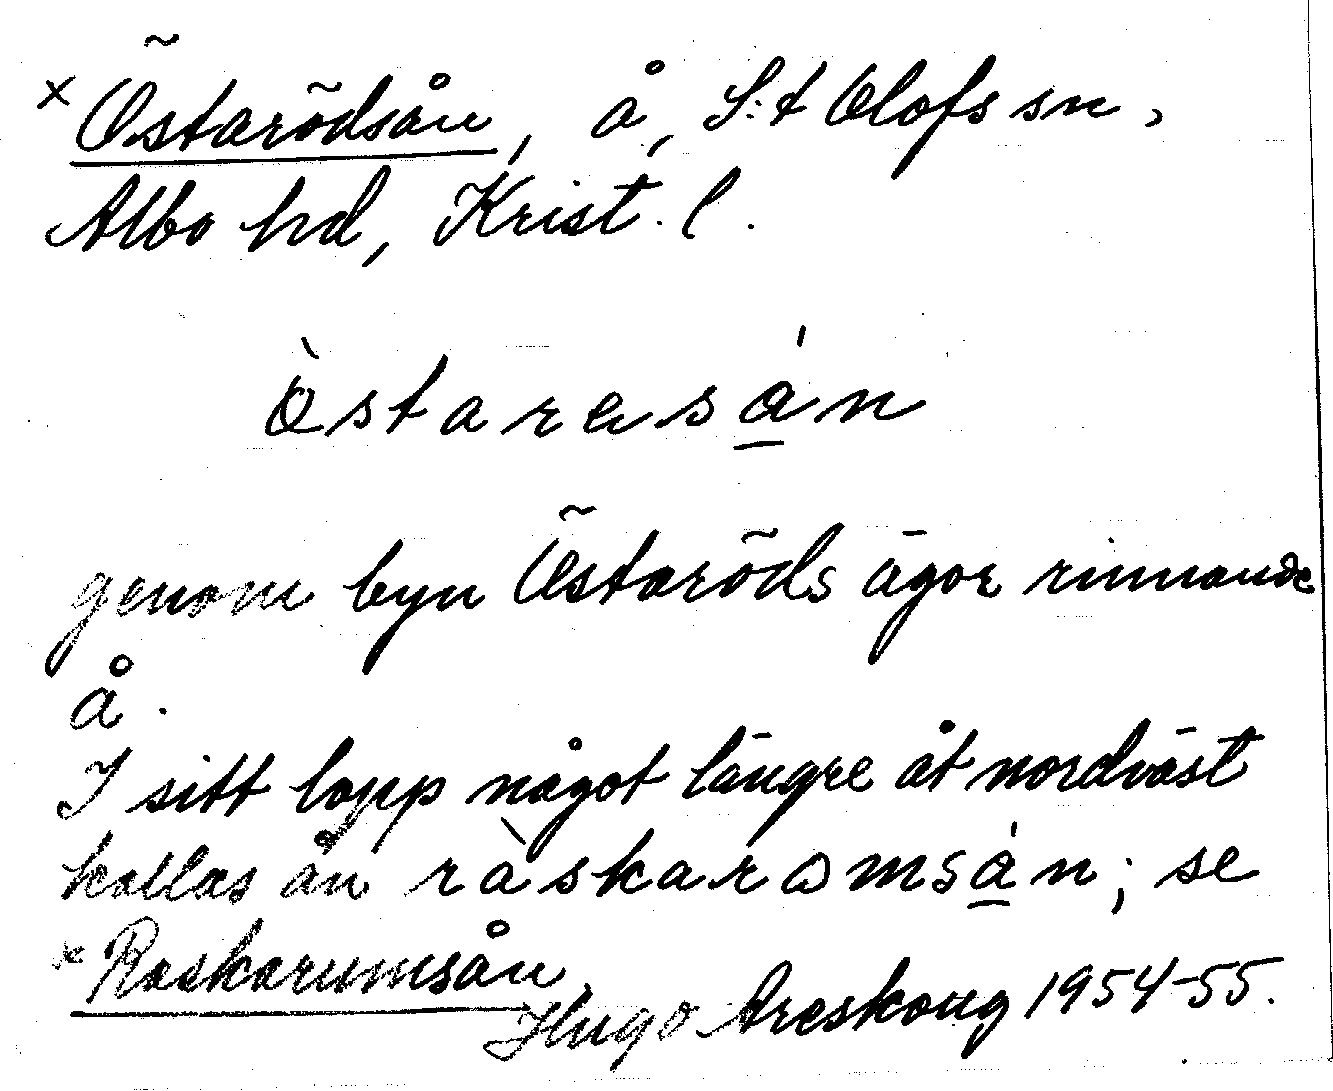 × Östarödsån, å, S:t Olofs sn,
Albo hd, Krist. l.
ö̀starɐsá̱n
genom byn Östaröds ägor rinnande
å.
I sitt lopp något längre åt nordväst
kallas ån ràskarɷmsá̱n; se
× Raskarumsån.
Hugo Areskoug 1954-55.